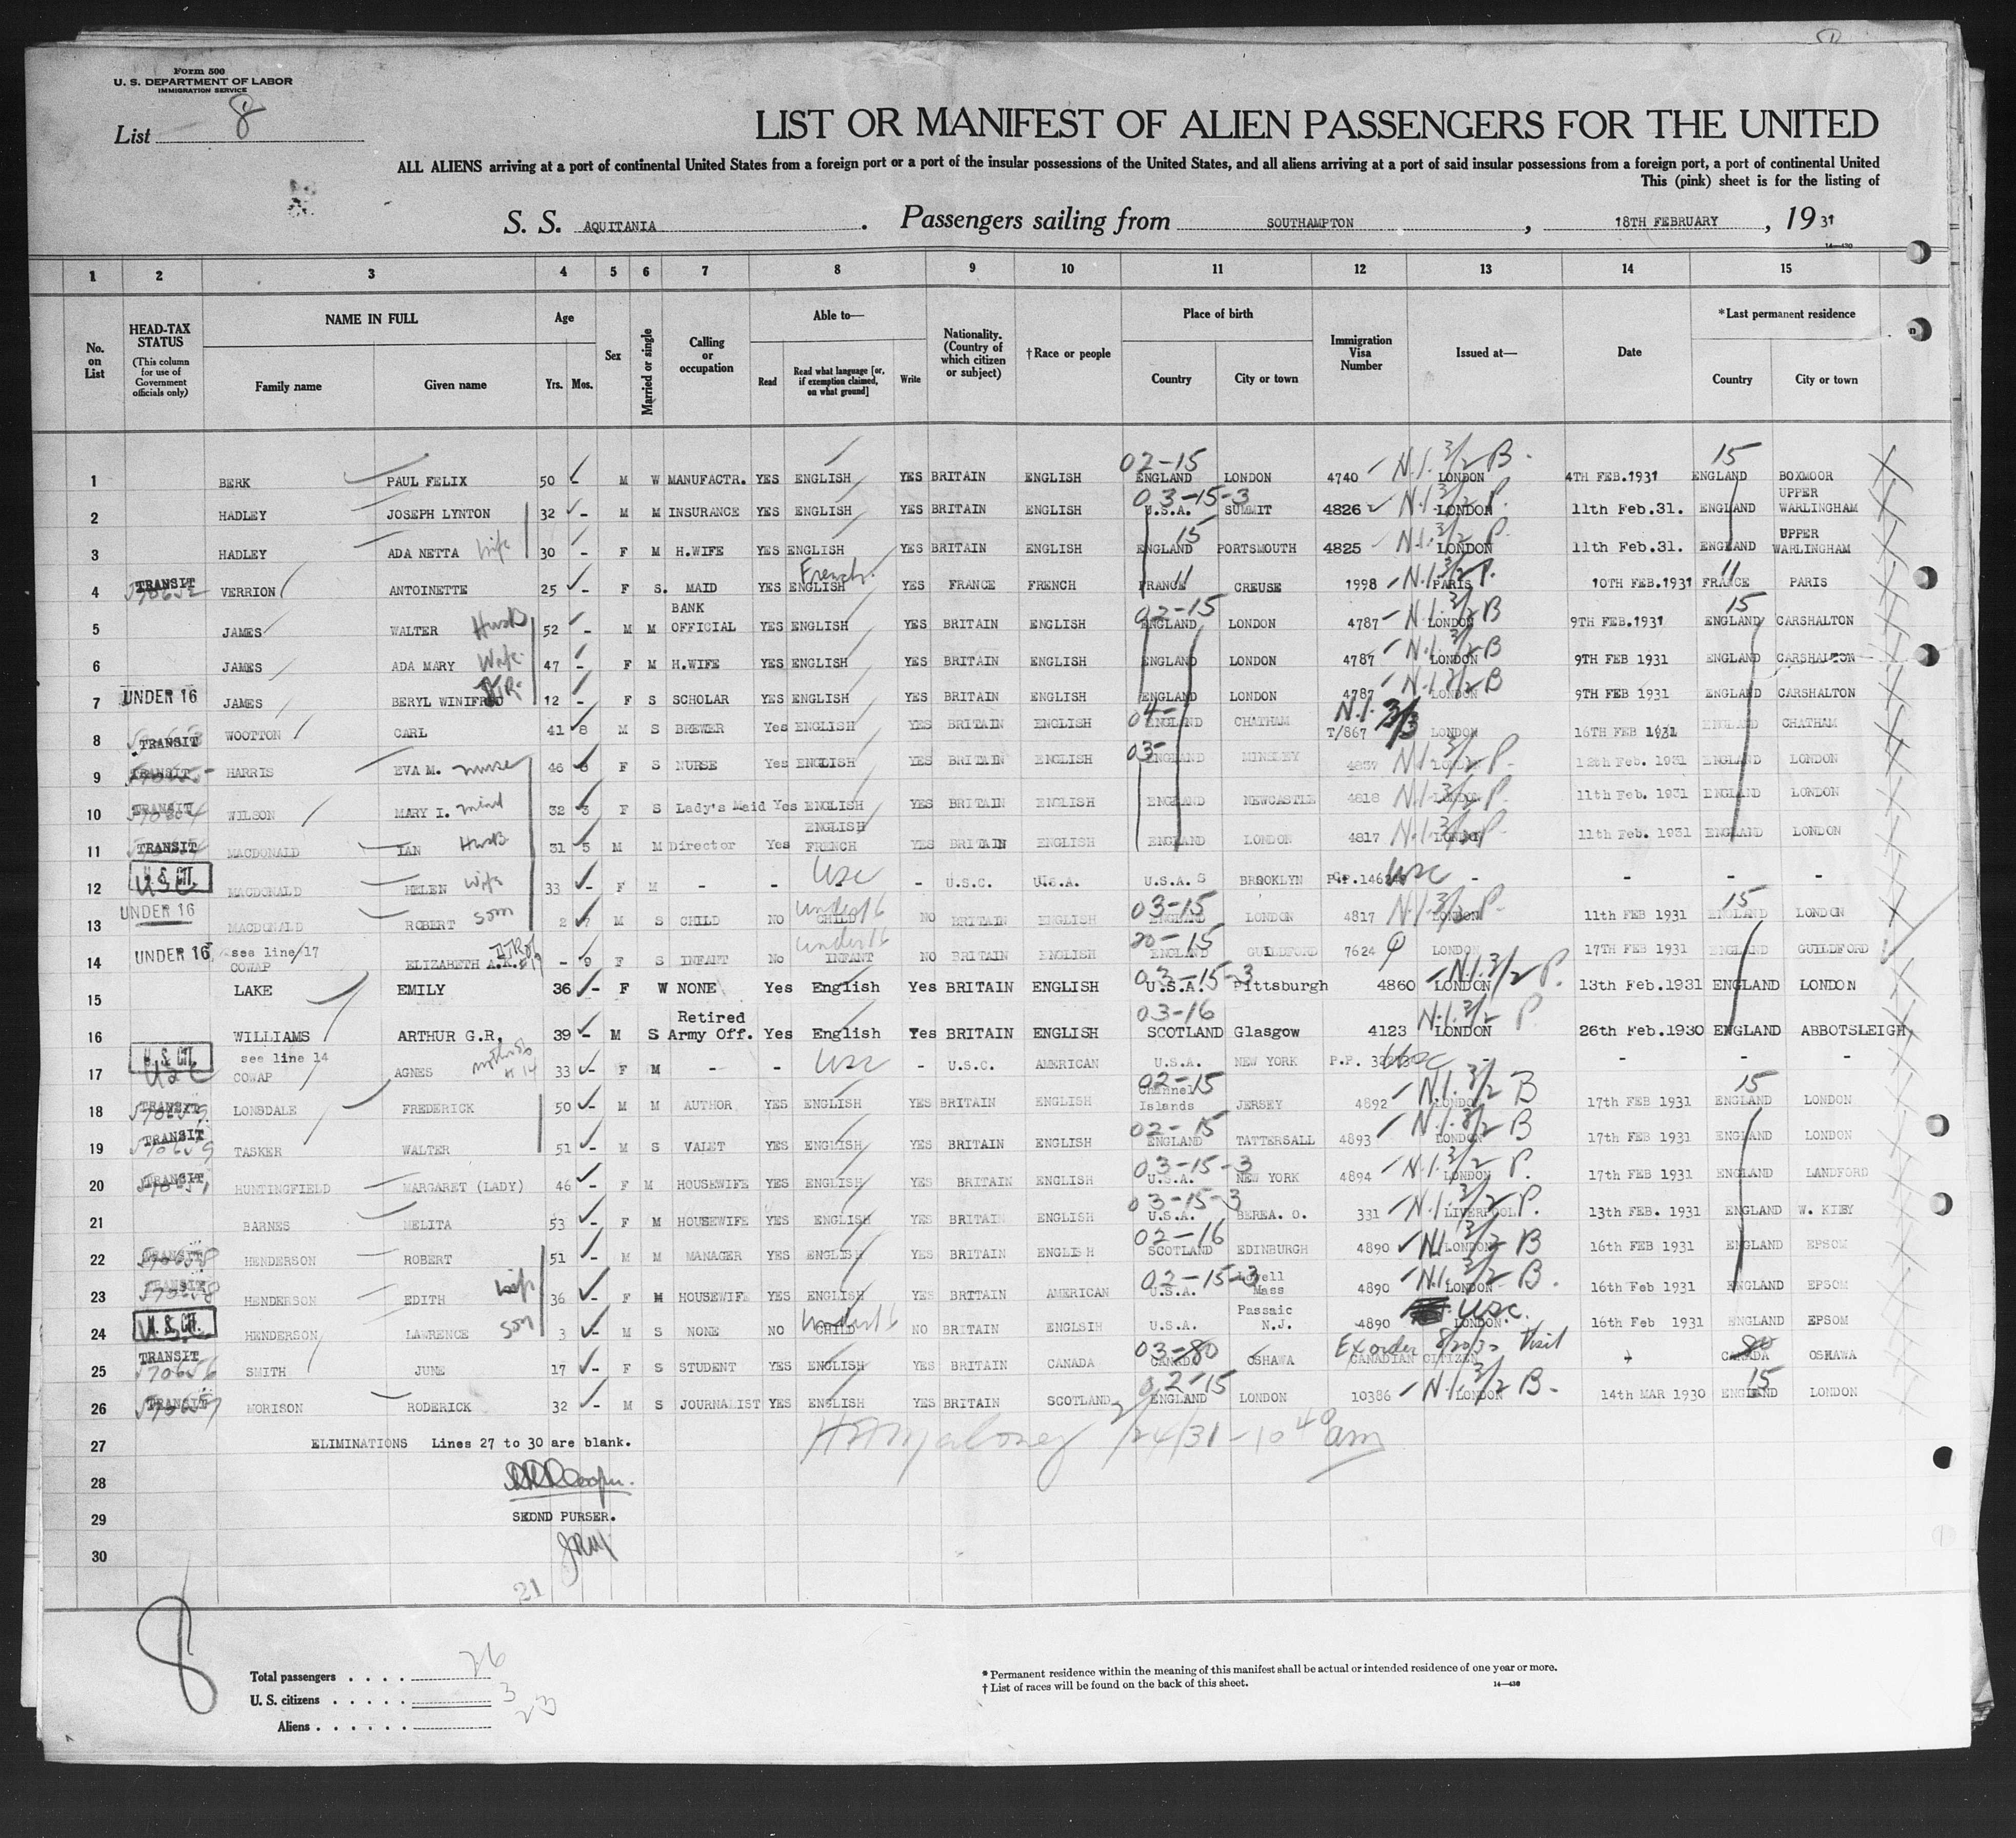 Form 500
U. S. DEPARTMENT OF LABOR
IMMIGRATION SERVICE
List 8
LIST OR MANIFEST OF ALIEN PASSENGERS FOR THE UNITED
ALL ALIENS arriving at a port of continental United States from a foreign port or a port of the insular possessions of the United States, and all aliens arriving at a port of said insular possessions from a foreign port, a port of continental United
This (pink) sheet is for the listing of
S. S. AQUITANIA . Passengers sailing from SOUTHAMPTON , 18TH FEBRUARY , 19 31
14—430
1 2 3 4 5 6 7 8 9 10 11 12 13 14 15
No. on List
HEAD-TAX STATUS (This column for use of Government officials only)
NAME IN FULL Family name Given name
Age Yrs. Mos.
Sex
Married or single
Calling or occupation
Able to— Read Read what language [or, if exemption claimed, on what ground] Write
Nationality. (Country of which citizen or subject)
† Race or people
Place of birth Country City or town
Immigration Visa Number
Issued at—
Date
* Last permanent residence Country City or town
1 BERK PAUL FELIX 50 - M W MANUFACTR. YES ENGLISH YES BRITAIN ENGLISH 02-15 ENGLAND LONDON 4740 N.I. 3/2 B. LONDON 4TH FEB.1931 15 ENGLAND BOXMOOR
2 HADLEY JOSEPH LYNTON 32 - M M INSURANCE YES ENGLISH YES BRITAIN ENGLISH 03-15-3 U.S.A. SUMMIT 4826 N.I. 3/2 P. LONDON 11th Feb.31. ENGLAND UPPER WARLINGHAM
3 HADLEY ADA NETTA wife 30 - F M H.WIFE YES ENGLISH YES BRITAIN ENGLISH 15 ENGLAND PORTSMOUTH 4825 N.I. 3/2 P. LONDON 11th Feb.31. ENGLAND UPPER WARLINGHAM
4 TRANSIT VERRION ANTOINETTE 25 - F S. MAID YES ENGLISH French. YES FRANCE FRENCH 11 FRANCE CREUSE 1998 N.I. 3/2 P. PARIS 10TH FEB.1931 11 FRANCE PARIS
5 JAMES WALTER HusB 52 - M M BANK OFFICIAL YES ENGLISH YES BRITAIN ENGLISH 02-15 ENGLAND LONDON 4787 N.I. 3/2 B LONDON 9TH FEB.1931 15 ENGLAND CARSHALTON
6 JAMES ADA MARY Wife 47 - F M H.WIFE YES ENGLISH YES BRITAIN ENGLISH ENGLAND LONDON 4787 N.I. 3/2 B LONDON 9TH FEB 1931 ENGLAND CARSHALTON
7 UNDER 16 JAMES BERYL WINIFRED 12 - F S SCHOLAR YES ENGLISH YES BRITAIN ENGLISH ENGLAND LONDON 4787 N.I. 3/2 B LONDON 9TH FEB 1931 ENGLAND CARSHALTON
8 TRANSIT WOOTTON CARL 41 8 M S BREWER Yes ENGLISH YES BRITAIN ENGLISH 04- ENGLAND CHATHAM T/867 N.I. 3/3 LONDON 16TH FEB 1931 ENGLAND CHATHAM
9 TRANSIT HARRIS EVA M. nurse 46 8 F S NURSE Yes ENGLISH YES BRITAIN ENGLISH 03- ENGLAND 4837 N.I. 3/2 P. LONDON 12th Feb. 1931 ENGLAND LONDON
10 TRANSIT WILSON MARY I. 32 3 F S Lady's Maid Yes ENGLISH YES BRITAIN ENGLISH ENGLAND NEWCASTLE 4818 N.I. 3/2 P. LONDON 11th Feb. 1931 ENGLAND LONDON
11 TRANSIT MACDONALD IAN HusB 31 5 M M Director Yes ENGLISH FRENCH YES BRITAIN ENGLISH ENGLAND LONDON 4817 N.I. 3/2 P. LONDON 11th Feb. 1931 ENGLAND LONDON
12 U. S. CIT. USC MACDONALD HELEN wife 33 - F M - - USC - U.S.C. U.S.A. U.S.A. BROOKLYN USC - - - -
13 UNDER 16 MACDONALD ROBERT son 2 7 M S CHILD NO CHILD under 16 NO BRITAIN ENGLISH 03-15 ENGLAND LONDON 4817 N.I. 3/2 P. LONDON 11th FEB 1931 15 ENGLAND LONDON
14 UNDER 16 see line 17 COWAP ELIZABETH A.K. - 9 F S INFANT No INFANT under 16 NO BRITAIN ENGLISH 20-15 ENGLAND GUILDFORD 7624 LONDON 17TH FEB 1931 ENGLAND GUILDFORD
15 LAKE EMILY 36 - F W NONE Yes English Yes BRITAIN ENGLISH 03-15-3 U.S.A. Pittsburgh 4860 N.I. 3/2 P. LONDON 13th Feb.1931 ENGLAND LONDON
16 WILLIAMS ARTHUR G.R. 39 - M S Retired Army Off. Yes English Yes BRITAIN ENGLISH 03-16 SCOTLAND Glasgow 4123 N.I. 3/2 P LONDON 26th Feb.1930 ENGLAND ABBOTSLEIGH
17 U. S. CIT. USC see line 14 COWAP AGNES mother of # 14 33 - F M - - USC - U.S.C. AMERICAN U.S.A. NEW YORK P.P. USC - - - -
18 TRANSIT LONSDALE FREDERICK 50 - M M AUTHOR YES ENGLISH YES BRITAIN ENGLISH 02-15 Channel Islands JERSEY 4892 N.I. 3/2 B LONDON 17th FEB 1931 15 ENGLAND LONDON
19 TRANSIT TASKER WALTER 51 - M S VALET YES ENGLISH YES BRITAIN ENGLISH 02-15 ENGLAND TATTERSALL 4893 N.I. 3/2 B LONDON 17th FEB 1931 ENGLAND LONDON
20 TRANSIT HUNTINGFIELD MARGARET (LADY) 46 - F M HOUSEWIFE YES ENGLISH YES BRITAIN ENGLISH 03-15-3 U.S.A. NEW YORK 4894 N.I. 3/2 P. LONDON 17th FEB 1931 ENGLAND LANDFORD
21 BARNES MELITA 53 - F M HOUSEWIFE YES ENGLISH YES BRITAIN ENGLISH 03-15-3 U.S.A. BEREA. O. 331 N.I. 3/2 P. LIVERPOOL 13th FEB. 1931 ENGLAND W. KIBY
22 TRANSIT HENDERSON ROBERT 51 - M M MANAGER YES ENGLISH YES BRITAIN ENGLISH 02-16 SCOTLAND EDINBURGH 4890 N.I. 3/2 B LONDON 16th FEB 1931 ENGLAND EPSOM
23 TRANSIT HENDERSON EDITH wife 36 - F M HOUSEWIFE YES ENGLISH YES BRITAIN AMERICAN 02-15-3 U.S.A. Lowell Mass 4890 N.I. 3/2 B. LONDON 16th Feb 1931 ENGLAND EPSOM
24 U. S. CIT. USC HENDERSON LAWRENCE son 3 - M S NONE NO CHILD under 16 NO BRITAIN ENGLSIH U.S.A. Passaic N.J. 4890 USC. LONDON. 16th Feb 1931 ENGLAND EPSOM
25 TRANSIT SMITH JUNE 17 - F S STUDENT YES ENGLISH YES BRITAIN CANADA 03-80 CANADA OSHAWA CANADIAN CITIZEN Ex order Visit CANADA 80 OSHAWA
26 TRANSIT MORISON RODERICK 32 - M S JOURNALIST YES ENGLISH YES BRITAIN SCOTLAND 02-15 ENGLAND LONDON 10386 N.I. 3/2 B. LONDON 14th MAR 1930 15 ENGLAND LONDON
27 ELIMINATIONS Lines 27 to 30 are blank. 2/24/31 - 10 40 am
28
29 SEOND PURSER.
30
21
8
Total passengers . . . . 26
U. S. citizens . . . . . 3
Aliens . . . . . . 23
* Permanent residence within the meaning of this manifest shall be actual or intended residence of one year or more.
† List of races will be found on the back of this sheet.
14—430